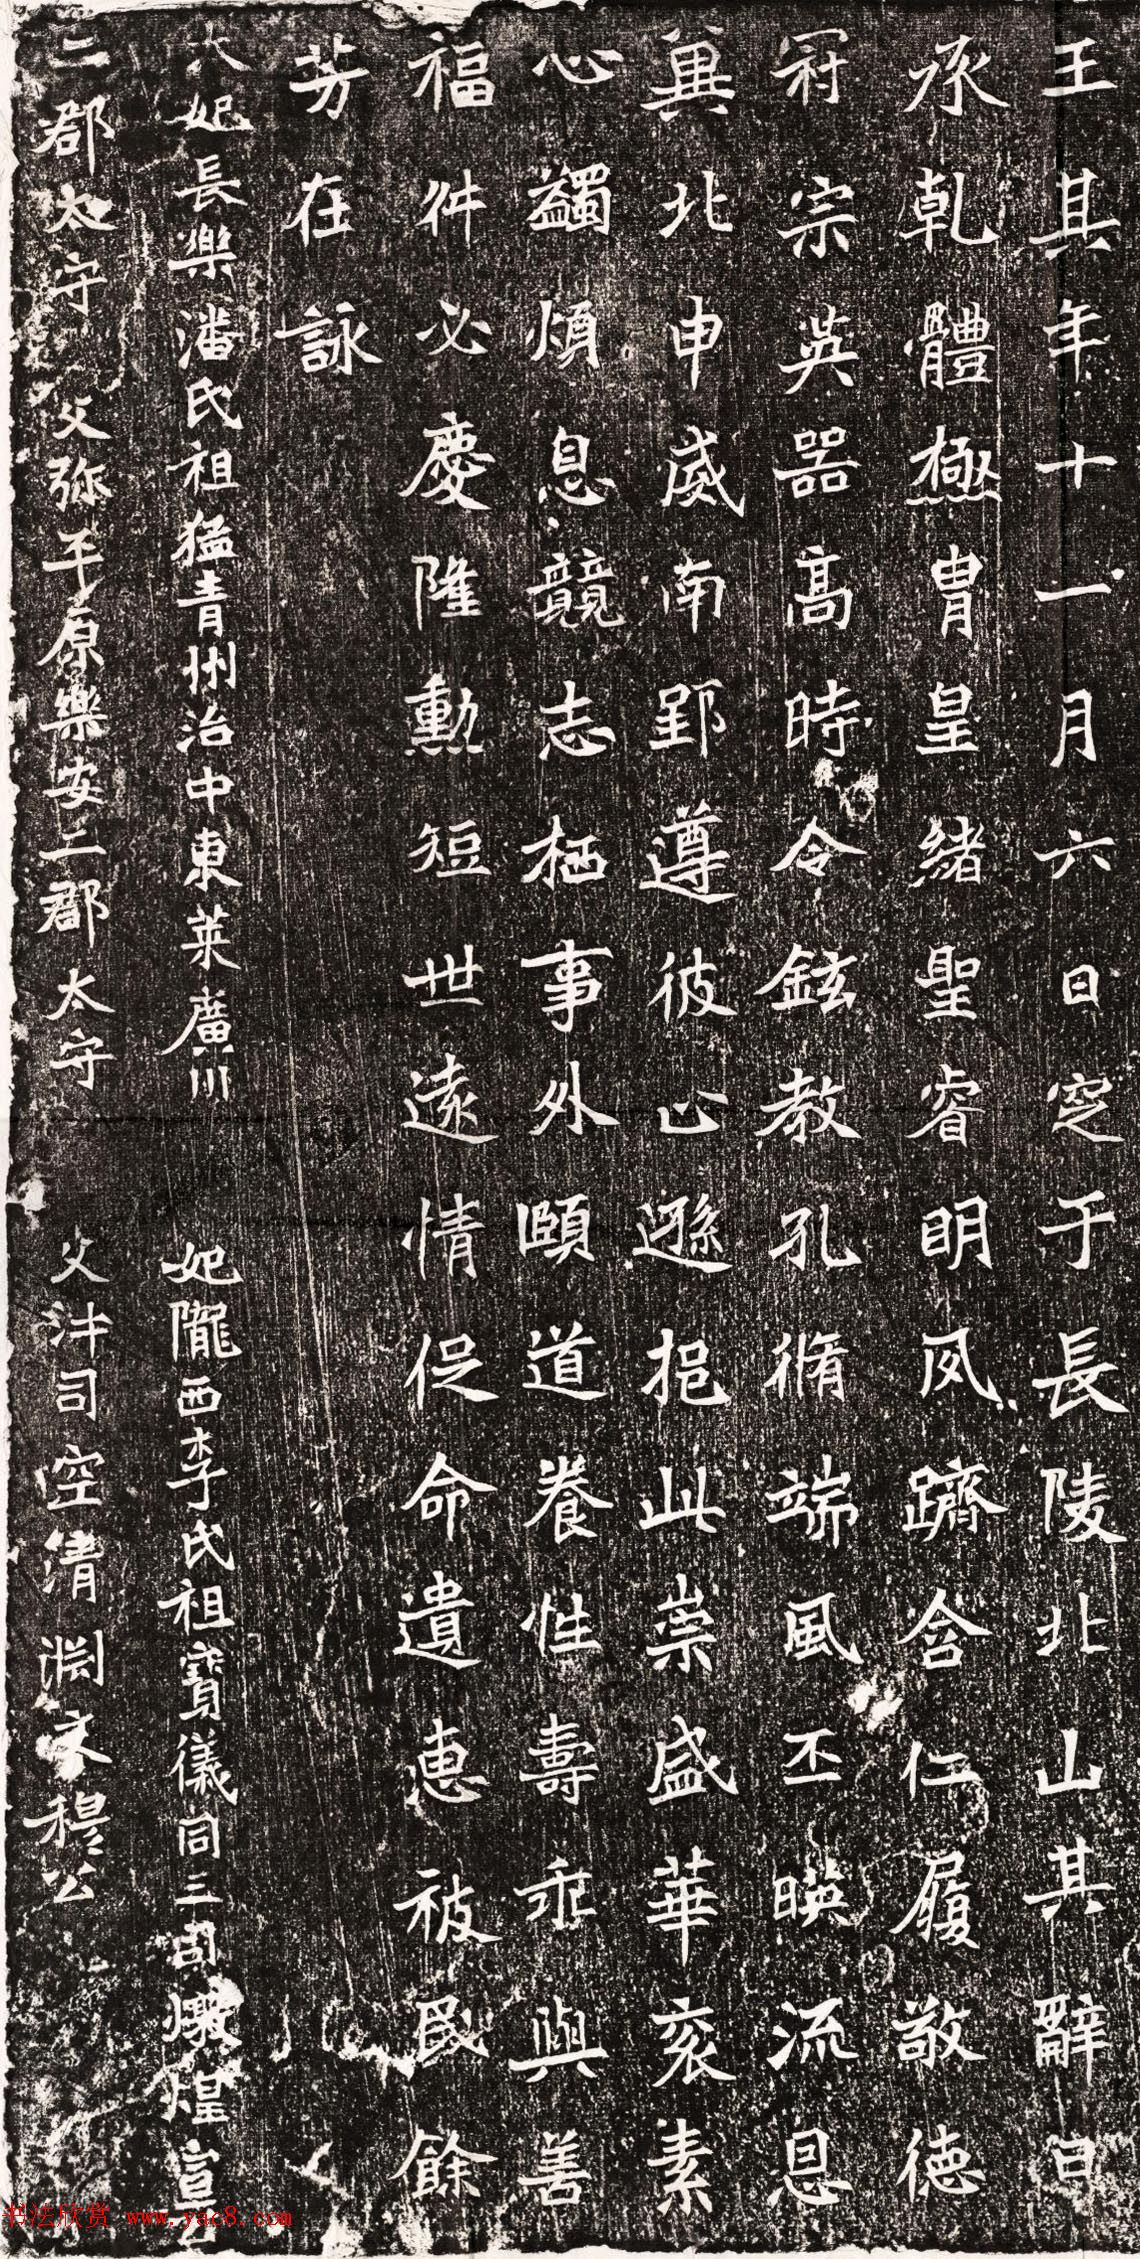 王其年十一月六日窆于長陵北山其辭曰
承乾體極胄皇緒聖睿明夙躋含仁履敬德
冠宗英器高時令鉉教孔脩端風丕映流恩
冀北申威南郢遵彼心遜挹此崇盛華衮素
心蠲煩息競志栖事外頤道養性壽乖與善
福舛必慶隆勳短世遠情促命遺惠被民餘
芳在詠
太妃長樂潘氏祖猛青州治中東萊廣川
二郡太守父弥平原樂安二郡太守
妃隴西李氏祖寶儀同三司燉煌宣公
父沖司空清淵文穆公
书法欣赏 www.yac8.com